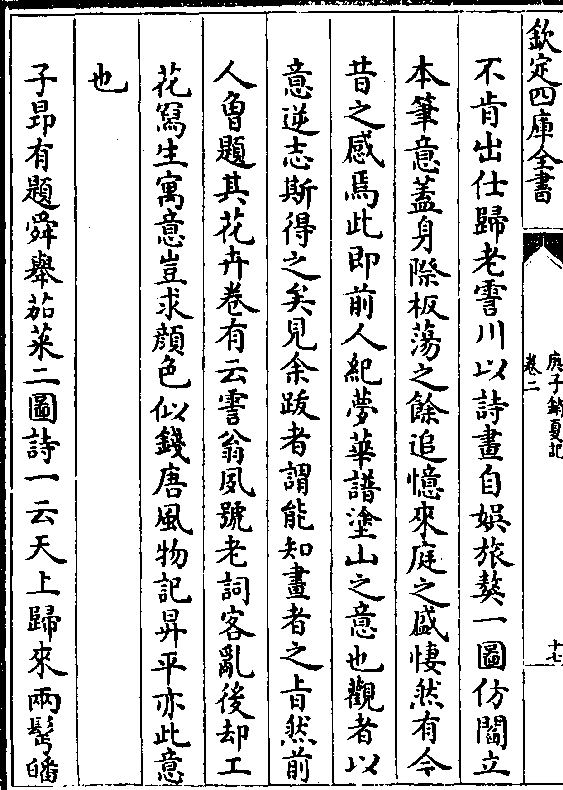 欽定四庫全書
庚子銷夏記
卷二
十七
不肯出仕歸老霅川以詩畫自娯旅獒一圖仿閻立
本筆意葢身際板蕩之餘追憶來庭之盛悽然有今
昔之感焉此即前人紀夢華譜塗山之意也觀者以
意逆志斯得之矣見余跋者謂能知畫者之㫖然前
人曾題其花卉卷有云霅翁夙號老詞客亂後却工
花寫生寓意豈求顔色似錢唐風物記昇平亦此意
也
子昻有題舜舉茄菜二圖詩一云天上歸來兩髩皤